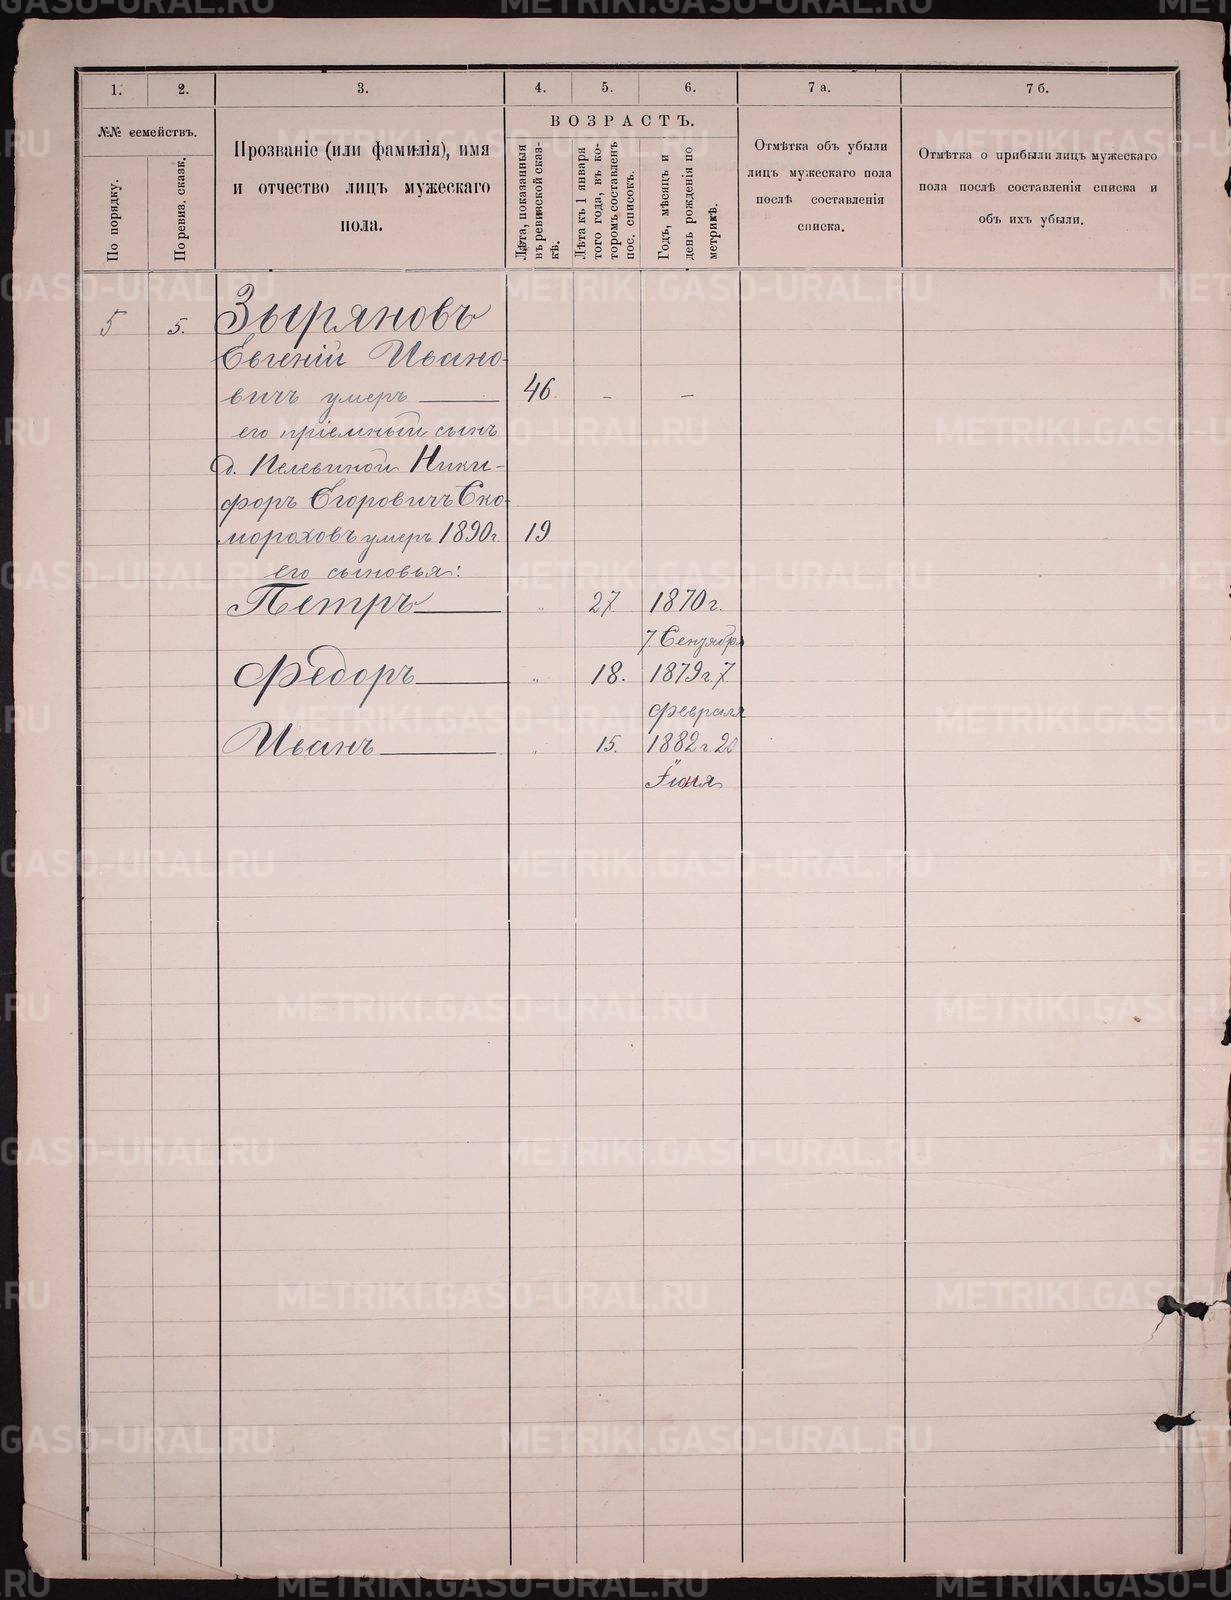 1.
2.
3.
4.
5.
6.
7 а.
7 б.
№№ семействъ.
По порядку.
По ревиз. сказк.
Прозваніе (или фамилія), имя
и отчество лицъ мужескаго
пола.
ВОЗРАСТЪ.
Лѣта, показанныя
въ ревизской сказ-
кѣ.
Лѣта къ 1 января
того года, въ ко-
торомъ составленъ
пос. списокъ.
Годъ, мѣсяцъ и
день рожденія по
метрикѣ.
Отмѣтка объ убыли
лицъ мужескаго пола
послѣ составленія
списка.
Отмѣтка о прибыли лицъ мужескаго
пола послѣ составленія списка и
объ ихъ убыли.
5 5. Зыряновъ
Евгеній Ивано-
вичъ умеръ — 46 - -
его пріемный сынъ
д. Пелевиной Ники-
форъ Егоровичъ Ско-
мороховъ умеръ 1890 г 19
его сыновья:
Петръ — " 27 1870 г.
7. Сентября
Федоръ — " 18. 1879 г. 7
февраля
Иванъ — " 15. 1882 г 20
METRIKI.GASO-URAL.RU